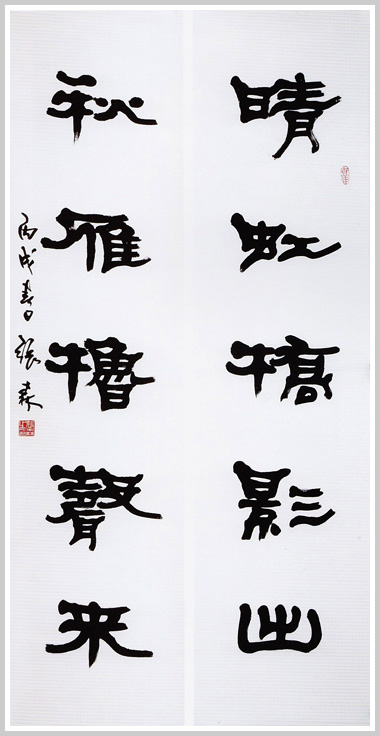 晴虹橋影出
秋雁櫓聲来
丙戌春日張森